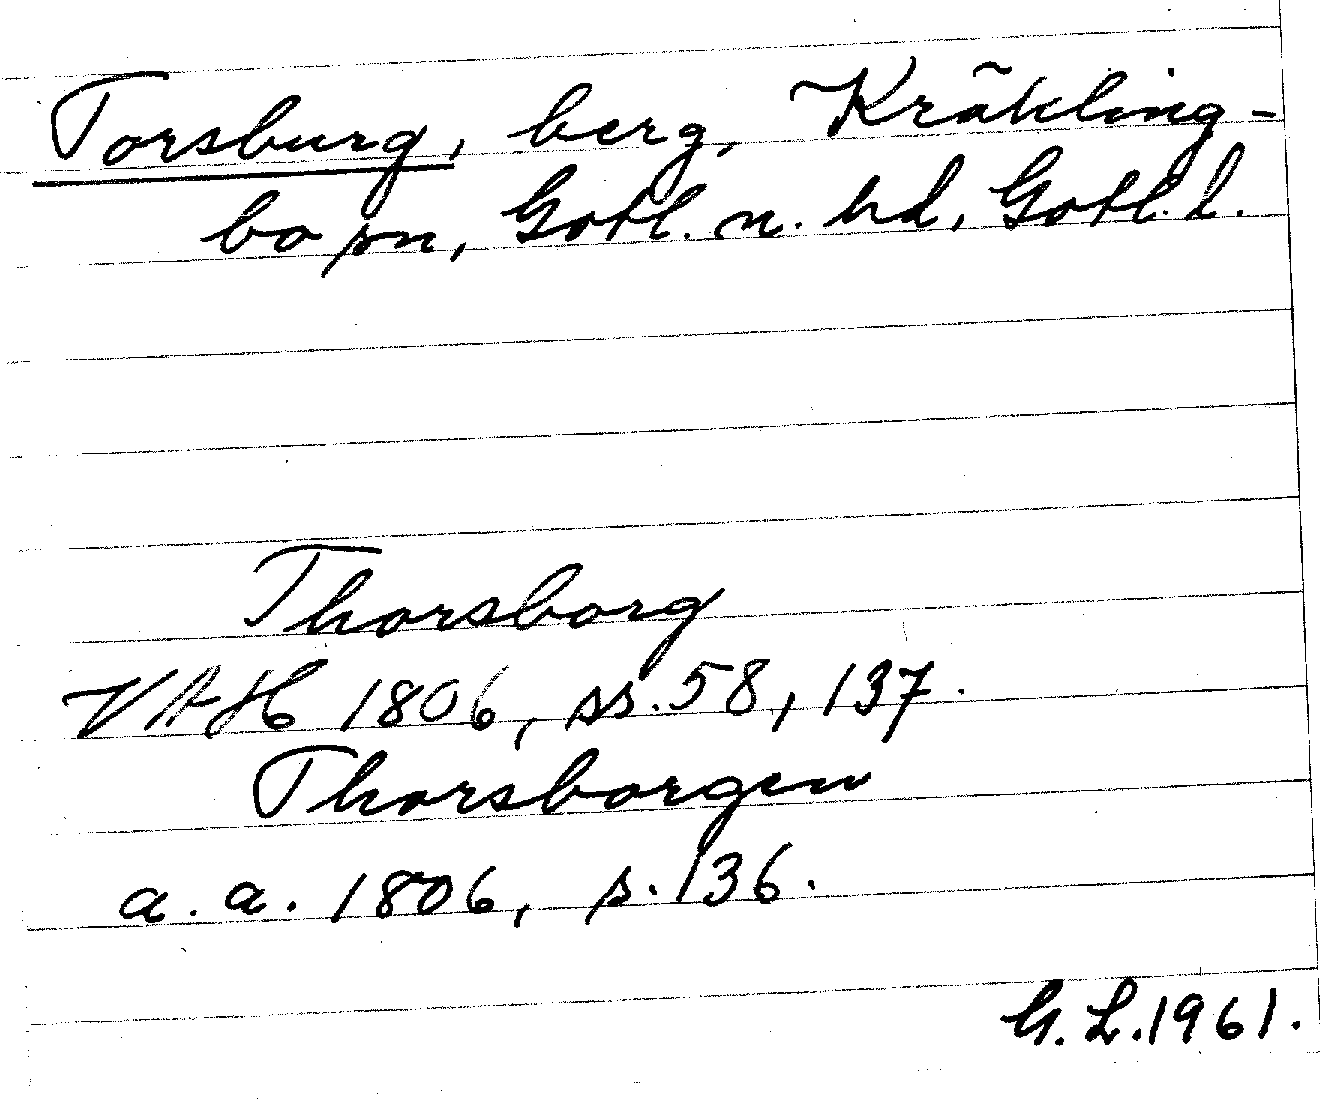 Torsburg, berg, Kräkling-
bo sn, Gotl. n. hd, Gotl. l.
Thorsborg
VAH 1806, ss. 58, 137.
Thorsborgen
a. a. 1806, s. 136.
G. L. 1961.